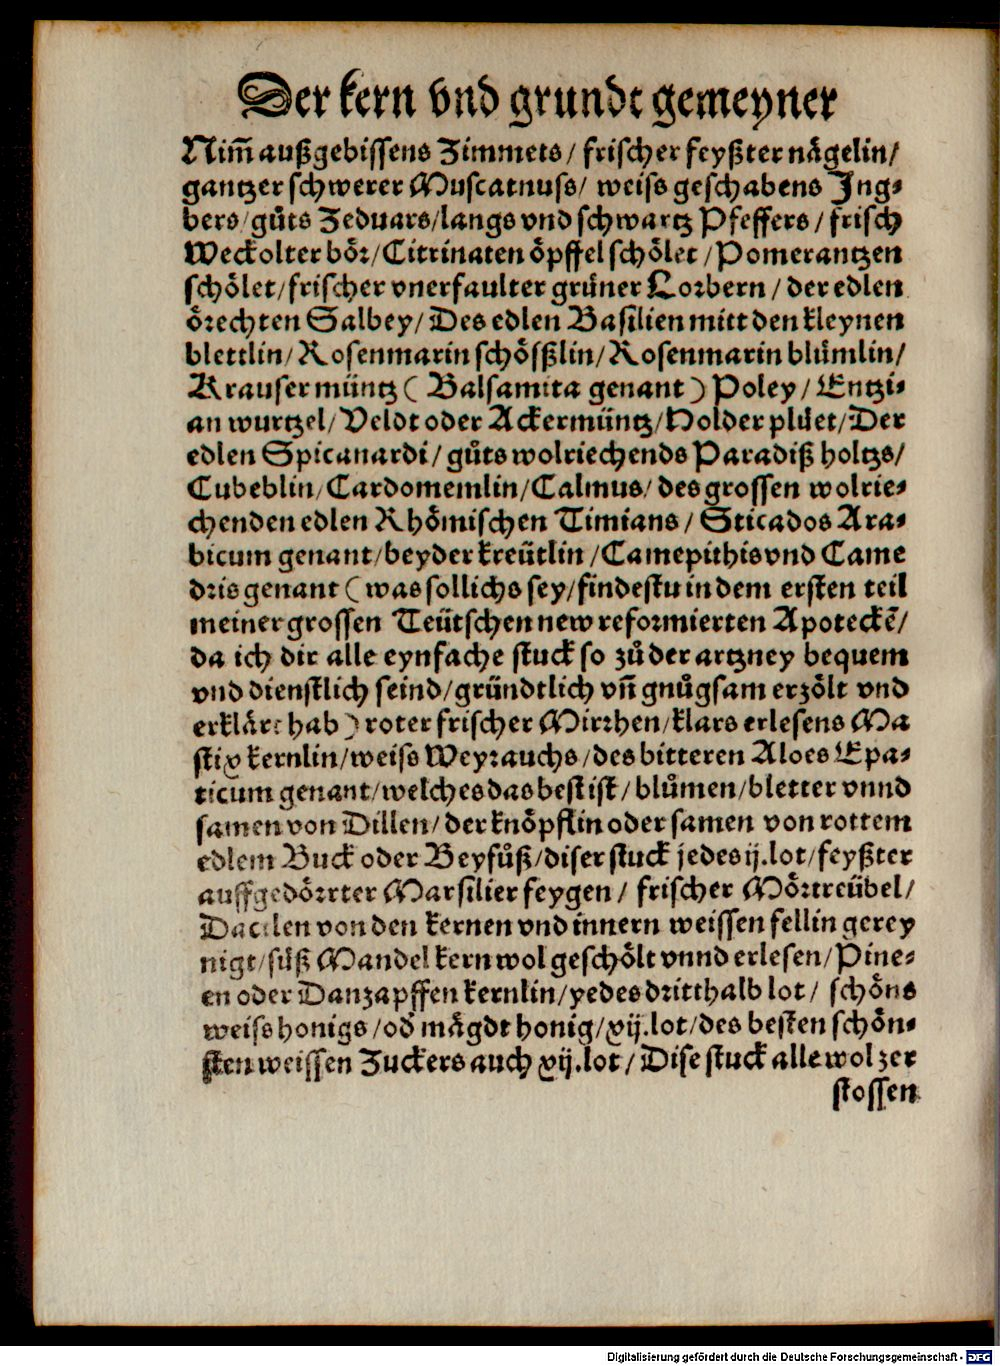 Der kern vnd grundt gemeyner
Nim̄ außgebissens Zimmets/ frischer feyßter nägelin/
gantzer schwerer Muscatnuss/ weiss geschabens Jng⸗
bers/ gůts Zeduars/ langs vnd schwartz Pfeffers/ frisch
Weckolter bör/ Citrinaten öpffel schölet/ Pomerantzen
schölet/ frischer vnerfaulter grüner Lorbern/ der edlen
örechten Salbey/ Des edlen Basilien mitt den kleynen
blettlin/ Rosenmarin schösßlin/ Rosenmarin blümlin/
Krauser müntz ( Balsamita genant ) Poley/ Entzi⸗
an wurtzel/ Veldt oder Ackermüntz/ Holder plüet/ Der
edlen Spicanardi/ gůts wolriechends Paradiß holtzs/
Cubeblin/ Cardomemlin/ Calmus/ des grossen wolrie⸗
chenden edlen Rhömischen Timians/ Sticados Ara⸗
bicum genant/ beyder kreütlin/ Camepithis vnd Came
dris genant ( was sollichs sey/ findestu in dem ersten teil
meiner grossen Teütschen new reformierten Apoteckē/
da ich dir alle eynfache stuck so zů der artzney bequem
vnd dienstlich seind/ gründtlich vn̄ gnůgsam erzölt vnd
erklärt hab ) roter frischer Mirrhen/ klars erlesens Ma
stix kernlin/ weiss Weyrauchs/ des bitteren Aloes Epa⸗
ticum genant/ welches das best ist/ blůmen/ bletter vnnd
samen von Dillen/ der knöpflin oder samen von rottem
edlem Buck oder Beyfůß/ diser stuck jedes ij. lot/ feyßter
auffgedörrter Marsilier feygen/ frischer Mörtreübel/
Dactlen von den kernen vnd innern weissen fellin gerey
nigt/ süß Mandel kern wol geschölt vnnd erlesen/ Pine⸗
en oder Danzapffen kernlin/ yedes dritthalb lot/ schöns
weiss honigs/ od̄ mägdt honig/ xij. lot/ des besten schön⸗
sten weissen Zuckers auch xij. lot/ Dise stuck alle wol zer
stossen
Digitalisierung gefördert durch die Deutsche Forschungsgemeinschaft - DFG